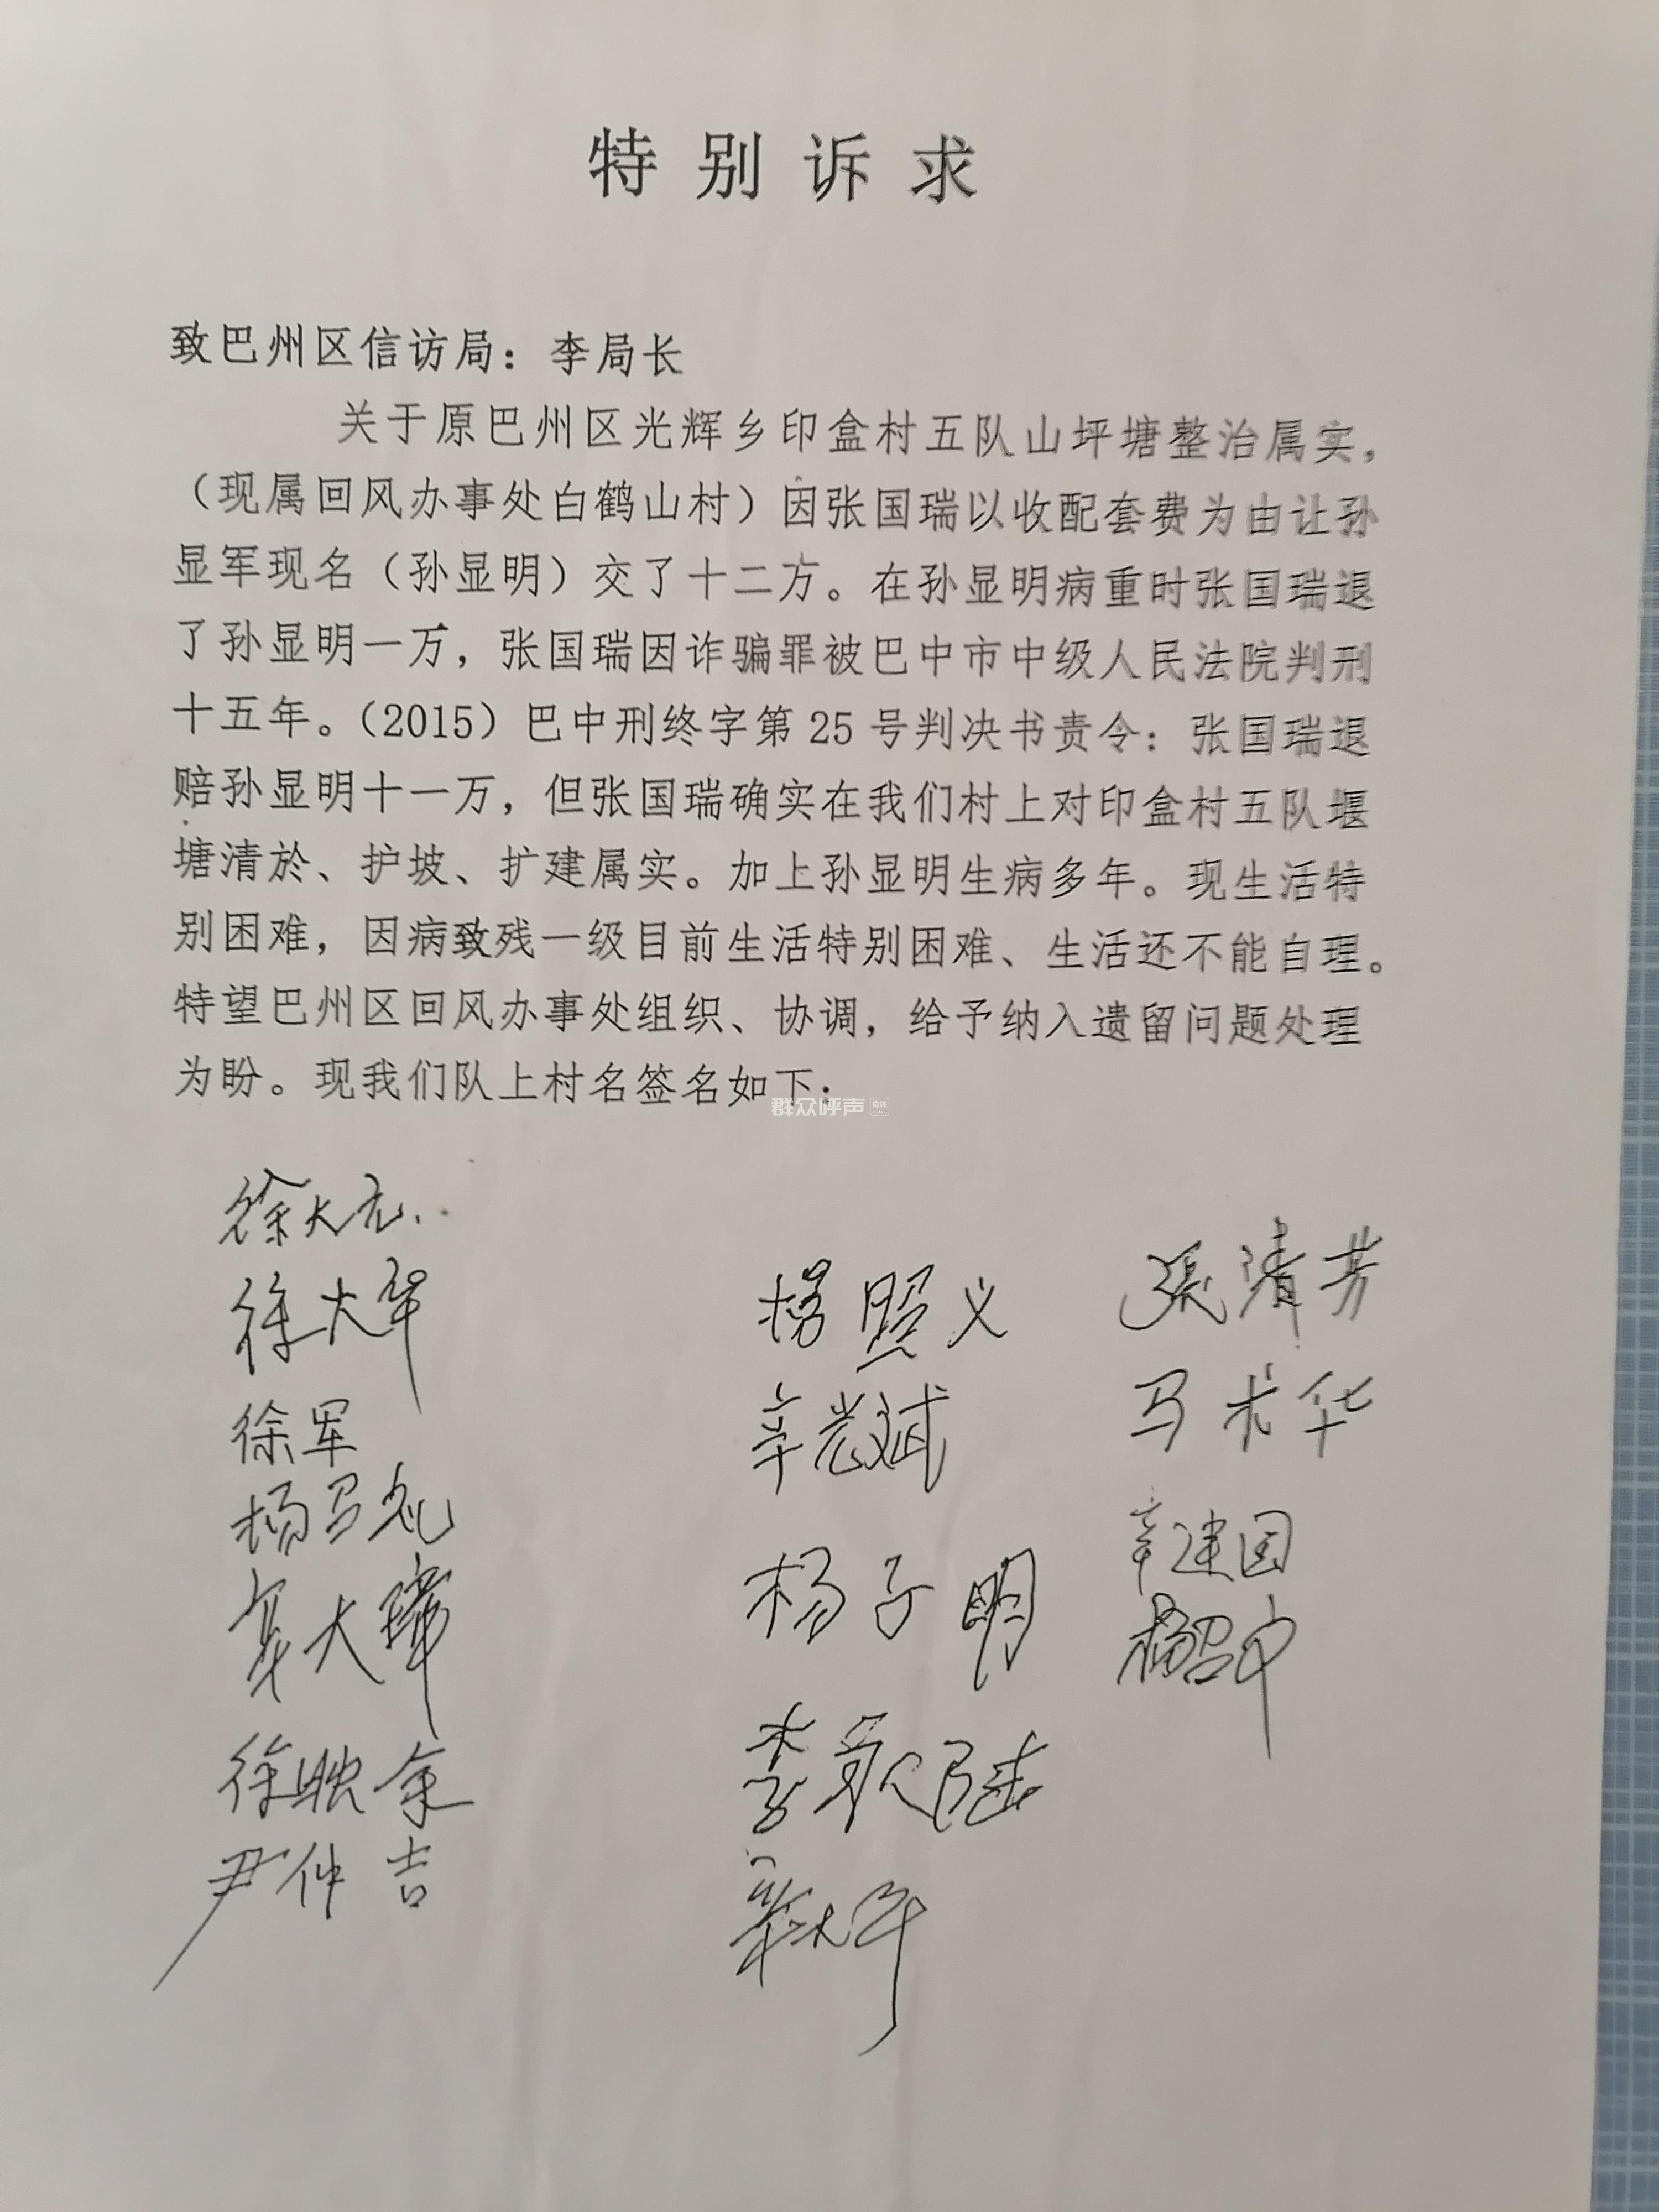 特别诉求
致巴州区信访局：李局长
关于原巴州区光辉乡印盒村五队山坪塘整治属实，
（现属回风办事处白鹤山村）因张国瑞以收配套费为由让孙
显军现名（孙显明）交了十二方。在孙显明病重时张国瑞退
了孙显明一万，张国瑞因诈骗罪被巴中市中级人民法院判刑
十五年。（2015）巴中刑终字第25号判决书责令：张国瑞退
赔孙显明十一万，但张国瑞确实在我们村上对印盒村五队堰
塘清於、护坡、扩建属实。加上孙显明生病多年。现生活特
别困难，因病致残一级目前生活特别困难、生活还不能自理。
特望巴州区回风办事处组织、协调，给予纳入遗留问题处理
为盼。现我们队上村名签名如下：
群众呼声
徐大
徐大军
徐军
杨
大
徐映余
尹仲吉
杨照义
辛 斌
杨子明
李
张清芳
马术华
辛建国
杨召中